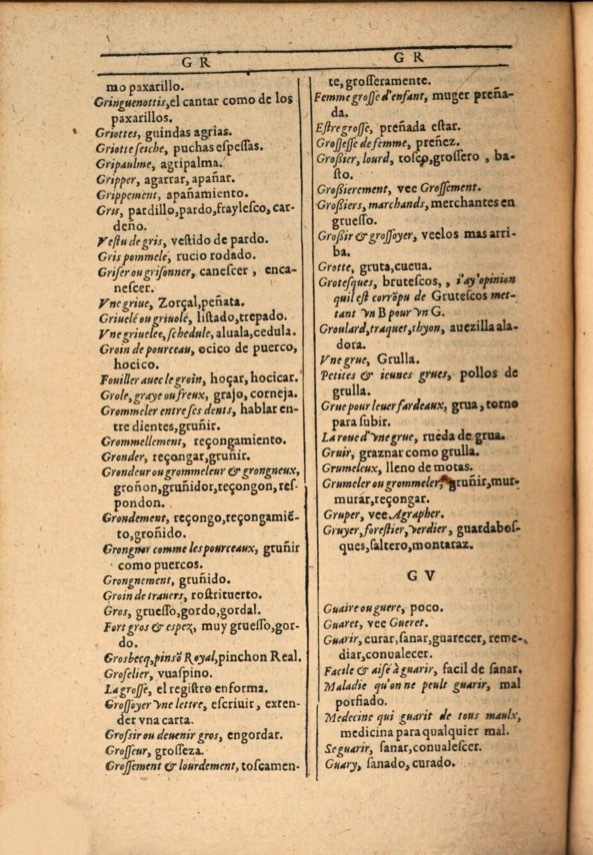 GR
mo paxarillo.
Gringuenottis, el cantar como de los
paxarillos.
Griottes, guindas agrias.
Griotte seiche, puchas espessas.
Gripaulme, agripalma.
Gripper, agarrar, apañar.
Grippement, apañamiento.
Gris, pardillo, pardo, fraylesco, car-
deño.
Vestu de gris, vestido de pardo.
Gris pommele, rucio rodado.
Griser ou grisonner, canescer, enca-
nescer.
Vne griue, Zorçal, peñata.
Griuelé ou griuolé, listado, trepado.
Vne griuelee, schedule, aluala, cedula.
Groin de pourceau, ocico de puerco,
hocico.
Fouiller auec le groin, hoçar, hocicar.
Grole, graye ou freux, grajo, corneja.
Grommeler entre ses dents, hablar en-
tre dientes, gruñir.
Grommellement, reçongamiento.
Gronder, reçongar, gruñir.
Grondeur ou grommeleur & grongneux,
groñon, gruñidor, reçongon, res-
pondon.
Grondement, reçongo, reçongamiẽ-
to, groñido.
Grongner comme les pourceaux, gruñir
como puercos.
Grongnement, gruñido.
Groin de trauers, rostrituerto.
Gros, gruesso, gordo, gordal.
Fort gros & espez, muy gruesso, gor-
do.
Grosbecq, pinsõ Royal, pinchon Real.
Groselier, vuaspino.
La grosse, el registro enforma.
Grossoyer vne lettre, escriuir, exten-
der vna carta.
Grossir ou deuenir gros, engordar.
Grosseur, grosseza.
Grossement & lourdement, toscamen-
GR
te, grosseramente.
Femme grosse d'enfant, muger preña-
da.
Estre grosse, preñada estar.
Grossesse de femme, preñez.
Grossier, lourd, tosco, grossero, ba-
sto.
Grossierement, vee Grossement.
Grossiers, marchands, merchantes en
gruesso.
Grossir & grossoyer, veelos mas arri-
ba.
Grotte, gruta, cueua.
Grotesques, brutescos,, i'ay opinion
quil est corrõpu de Grutescos met-
tant vn B pour vn G.
Groulard, traquet, thyon, auezilla ala-
dora.
Vne grue, Grulla.
Petites & ieunes grues, pollos de
grulla.
Grue pour leuer fardeaux, grua, torno
para subir.
La roue d'vne grue, rueda de grua.
Gruir, graznar como grulla.
Grumeleux, lleno de motas.
Grumeler ou grommeler, gruñir, mur-
murar, reçongar.
Gruper, vee Agrapher.
Gruyer, forestier, verdier, guardabos-
ques, saltero, montaraz.
GV
Guaire ou guere, poco.
Guaret, vee Gueret.
Guarir, curar, sanar, guarecer, reme-
diar, conualecer.
Facile & aisé à guarir, facil de sanar.
Maladie qu'on ne peult guarir, mal
porfiado.
Medecine qui guarit de tous maulx,
medicina para qualquier mal.
Se guarir, sanar, conualescer.
Guary, sanado, curado.